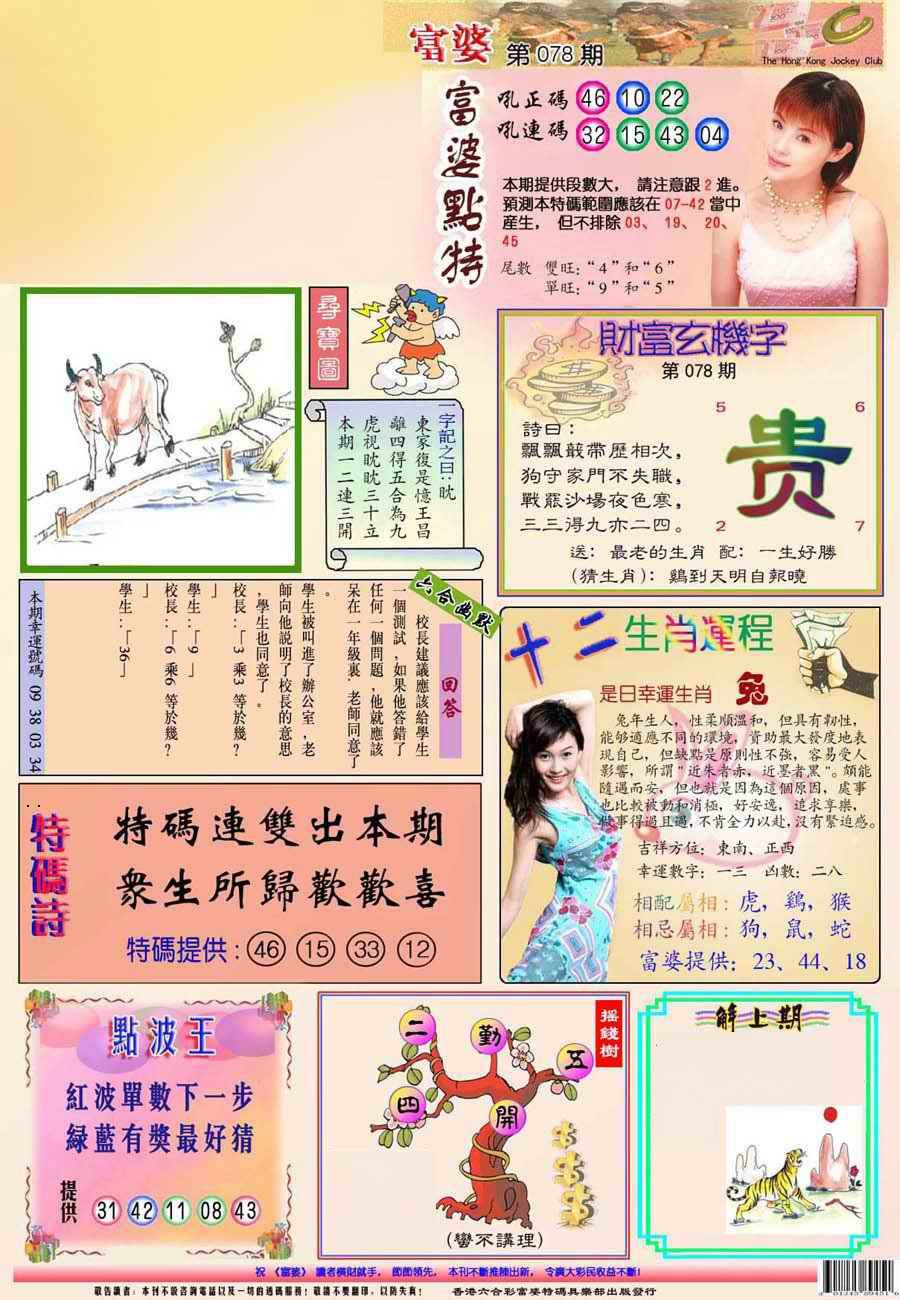 富婆 第078期
The Hong Kong Jockey Club
富婆點特
吼正碼 46 10 22
吼連碼 32 15 43 04
本期提供段數大， 請注意跟2進。
預測本特碼範圍應該在07-42當中
産生， 但不排除03、 19、 20、
45
尾數 雙旺:“4”和“6”
單旺:“9”和“5”
尋寶圖
一字記之曰:眈
東家復是憶王昌
離四得五合為九
虎視眈眈三十立
本期一二連三開
財富玄機字
第078期
詩曰：
飄飄戠帶歷相次，
狗守家門不失職，
戰罷沙場夜色寒，
三三得九亦二四。
5 6
贵
2 7
送：最老的生肖 配：一生好勝
(猜生肖)：鷄到天明自報曉
六合幽默
回答
校長建議應該給學生
一個測試,如果他答錯了
任何一個問題,他就應該
呆在一年級裏.老師同意了
。
學生被叫進了辦公室,老
師向他説明了校長的意思
,學生也同意了。
校長:「3 乘3 等於幾?
」
學生:「9 」
校長:「6 乘6 等於幾?
」
學生:「36 」
本期幸運號碼 09 38 03 34
十二生肖運程
是日幸運生肖 兔
兔年生人，性柔順溫和，但具有韌性，
能够適應不同的環境，資助最大發度地表
現自己，但缺點是原則性不強，容易受人
影響，所謂"近朱者赤，近墨者黑"。頗能
隨遇而安，但也就是因為這個原因，處事
也比較被動和消極，好安逸，追求享樂，
做事得過且過,不肯全力以赴,沒有緊迫感。
吉祥方位：東南、正西
幸運數字：一三 凶數：二八
相配屬相：虎，鷄，猴
相忌屬相：狗，鼠，蛇
富婆提供：23、44、18
特碼詩
特碼連雙出本期
衆生所歸歡歡喜
特碼提供：46 15 33 12
點波王
紅波單數下一步
綠藍有獎最好猜
提供 31 42 11 08 43
摇錢樹
二 勤 五
四 開
(蠻不講理)
解上期
祝 《富婆》 讀者橫財就手， 節節領先， 本刊不斷推陳出新， 令廣大彩民收益不斷!
敬告讀者：本刊不設咨詢電話以及一切的透碼服務！敬請不要翻印，以防失真！ 香港六合彩富婆特碼具樂部出版發行